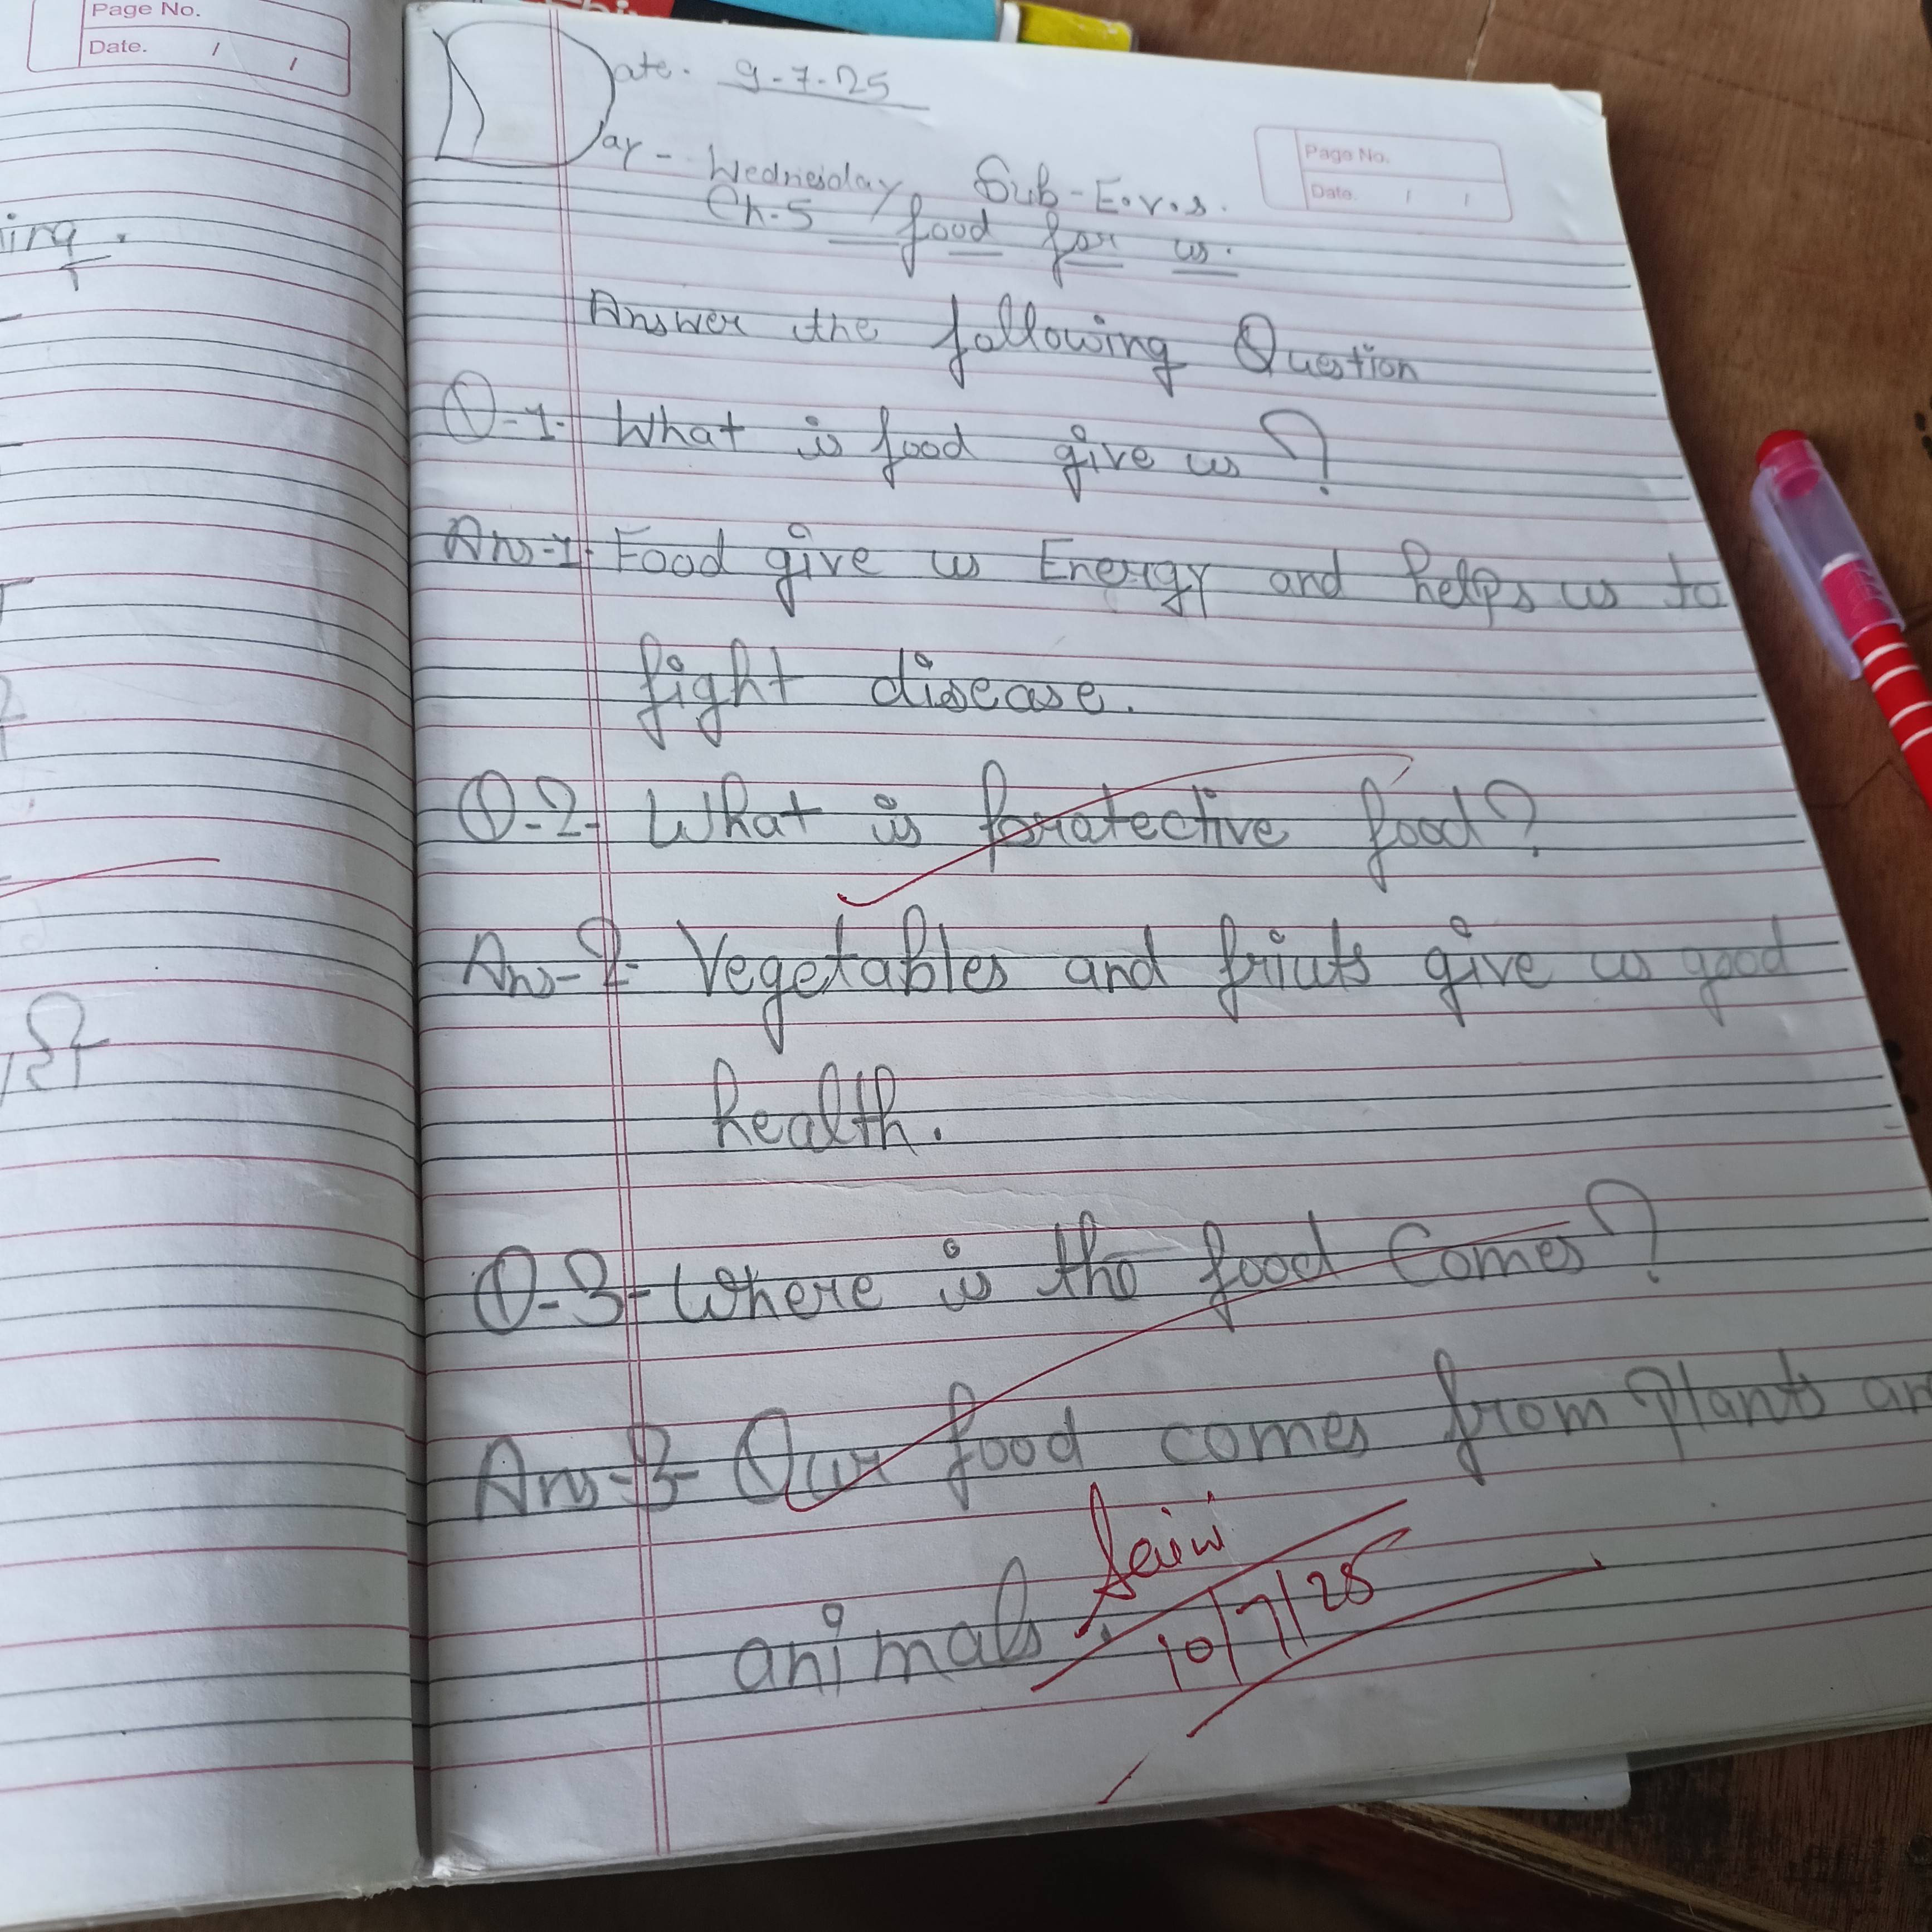 Page No.
Date. / /
ing.
Date. 9-7-25
Day - Wednesday Sub-E.v.s.
Page No.
Date. / /
Ch-5 food for us.
Answer the following Question
Q-1- What is food give us?
Ans-1- Food give us Energy and helps us to
fight disease.
Q-2- What is protective food?
Ans-2- Vegetables and friuts give us good
health.
Q-3- Where is the food Comes?
Ans-3- Our food comes from Plants an
animals.
10/7/25